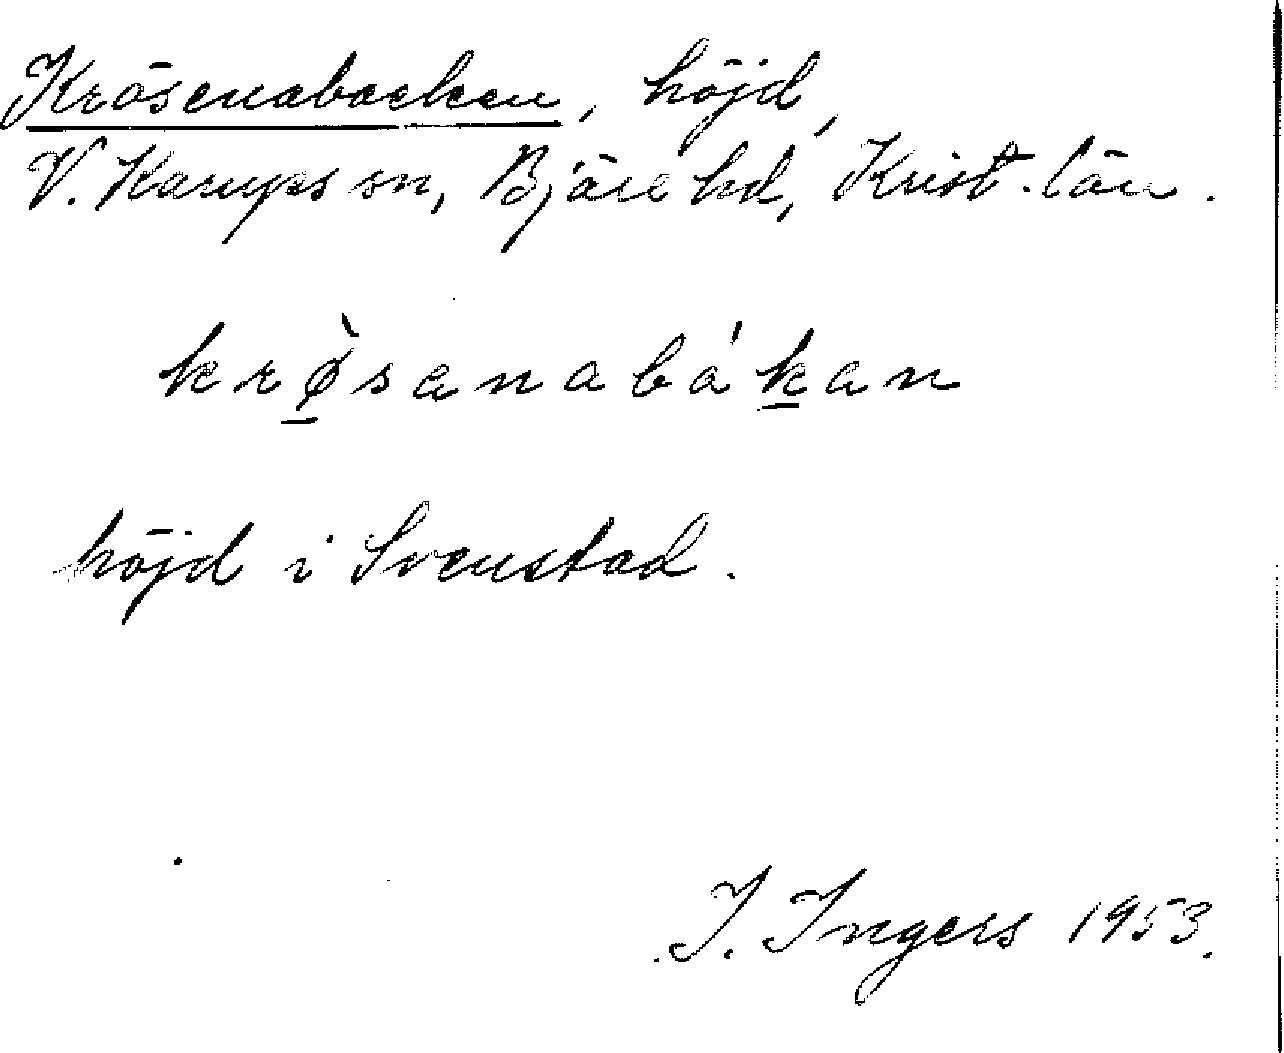 Krösenabacken, höjd,
V. Karups sn, Bjäre hd, Krist. län.
krø̀sanabákan
höjd i Svenstad.
I. Ingers 1953.